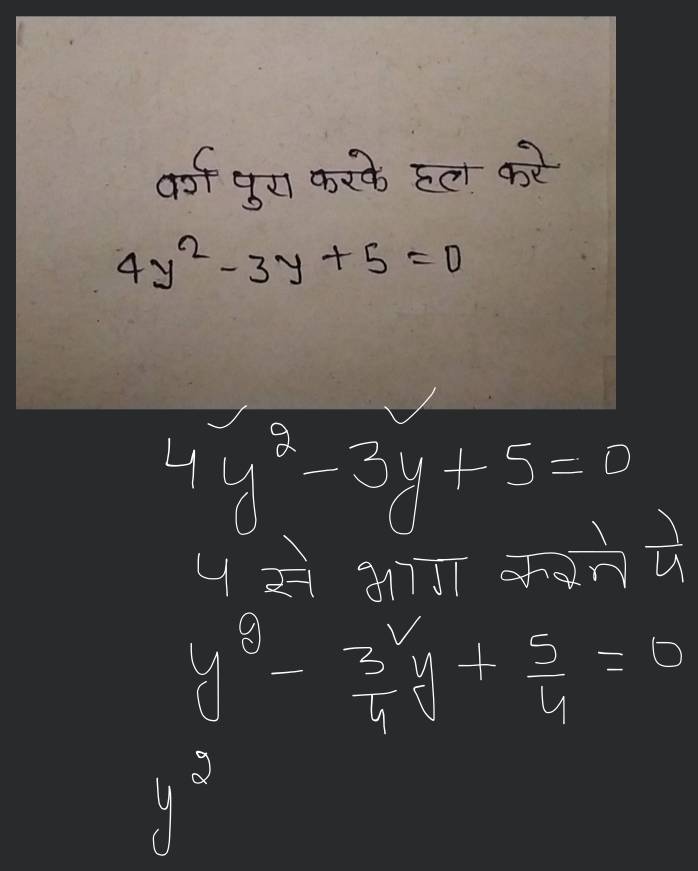 वर्ग पुरा करके हल करे
4y² - 3y + 5 = 0
4y² - 3y + 5 = 0
4 से भाग करने पे
y² - 3/4 y + 5/4 = 0
y²